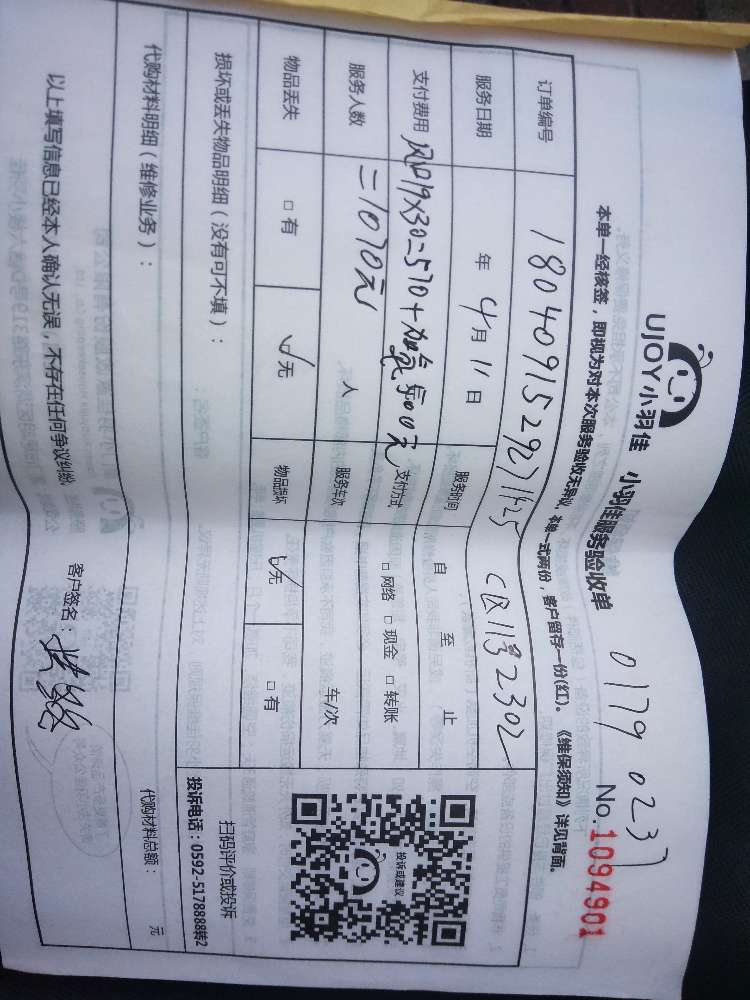 UJOY小羽佳 小羽佳服务验收单
0179 0237
No.1094901
本单一经核签，即视为对本次服务验收无异议，本单一式两份，客户留存一份(红)。《维保须知》详见背面。
订单编号 C区11号2302
服务日期 年 4月11日 服务时间 自 至 止
支付费用 风口19×30=570+加氟500元 支付方式 □网络 □现金 □转账
=1070元
服务人数 人 服务车次 车/次
物品丢失 □有 √无 物品损坏 √无 □有
投诉或建议
扫码评价或投诉
投诉电话：0592-5178888转2
损坏或丢失物品明细（没有可不填）：
代购材料明细（维修业务）： 代购材料总额： 元
以上填写信息已经本人确认无误，不存在任何争议纠纷 客户签名：